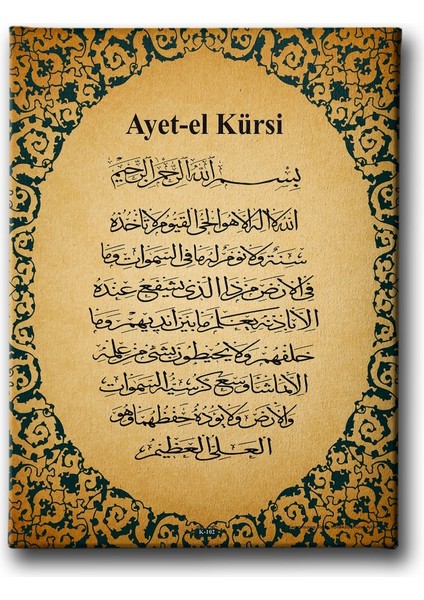 Ayet-el Kürsi
بسم الله الرحمن الرحيم
الله لا اله الا هو الحي القيوم لا تأخذه
سنة ولا نوم له ما في السموات وما
في الارض من ذا الذي يشفع عنده
الا باذنه يعلم ما بين ايديهم وما
خلفهم ولا يحيطون بشئ من علمه
الا بما شاء وسع كرسيه السموات
والارض ولا يؤده حفظهما وهو
العلي العظيم
K-102